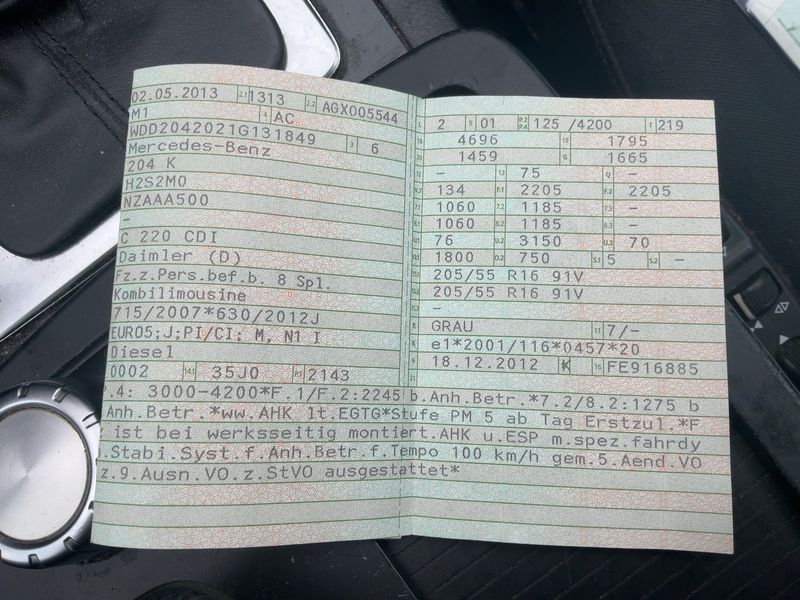 02.05.2013 2.1 1313 2.2 AGX005544
M1 4 AC
WDD2042021G131849 3 6
Mercedes-Benz
204 K
H2S2M0
NZAAA500
-
C 220 CDI
Daimler (D)
Fz.z.Pers.bef.b. 8 Spl.
Kombilimousine
715/2007*630/2012J
EURO5;J;PI/CI; M, N1 I
Diesel
0002 14.1 35J0 P.1 2143
2 9 01 P.2 P.4 125 /4200 T 219
18 4696 19 1795
20 1459 G 1665
12 - 13 75 Q -
V.7 134 F.1 2205 F.2 2205
7.1 1060 7.2 1185 7.3 -
8.1 1060 8.2 1185 8.3 -
U.1 76 U.2 3150 U.3 70
O.1 1800 O.2 750 S.1 5 S.2 -
15.1 205/55 R16 91V
15.2 205/55 R16 91V
15.3 -
R GRAU 11 7/-
K e1*2001/116*0457*20
6 18.12.2012 K 16 FE916885
21
.4: 3000-4200*F.1/F.2:2245 b.Anh.Betr.*7.2/8.2:1275 b
Anh.Betr.*ww.AHK lt.EGTG*Stufe PM 5 ab Tag Erstzul.*F
ist bei werksseitig montiert.AHK u.ESP m.spez.fahrdy
.Stabi.Syst.f.Anh.Betr.f.Tempo 100 km/h gem.5.Aend.VO
z.9.Ausn.VO.z.StVO ausgestattet*